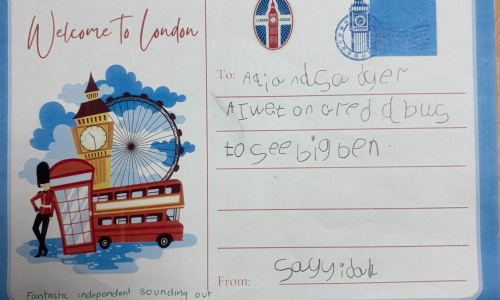 Welcome to London
LONDON
To: Adjandsadger
A I wet on a red d bus
to see big ben.
From: Sayyidah
Fantastic independent sounding out